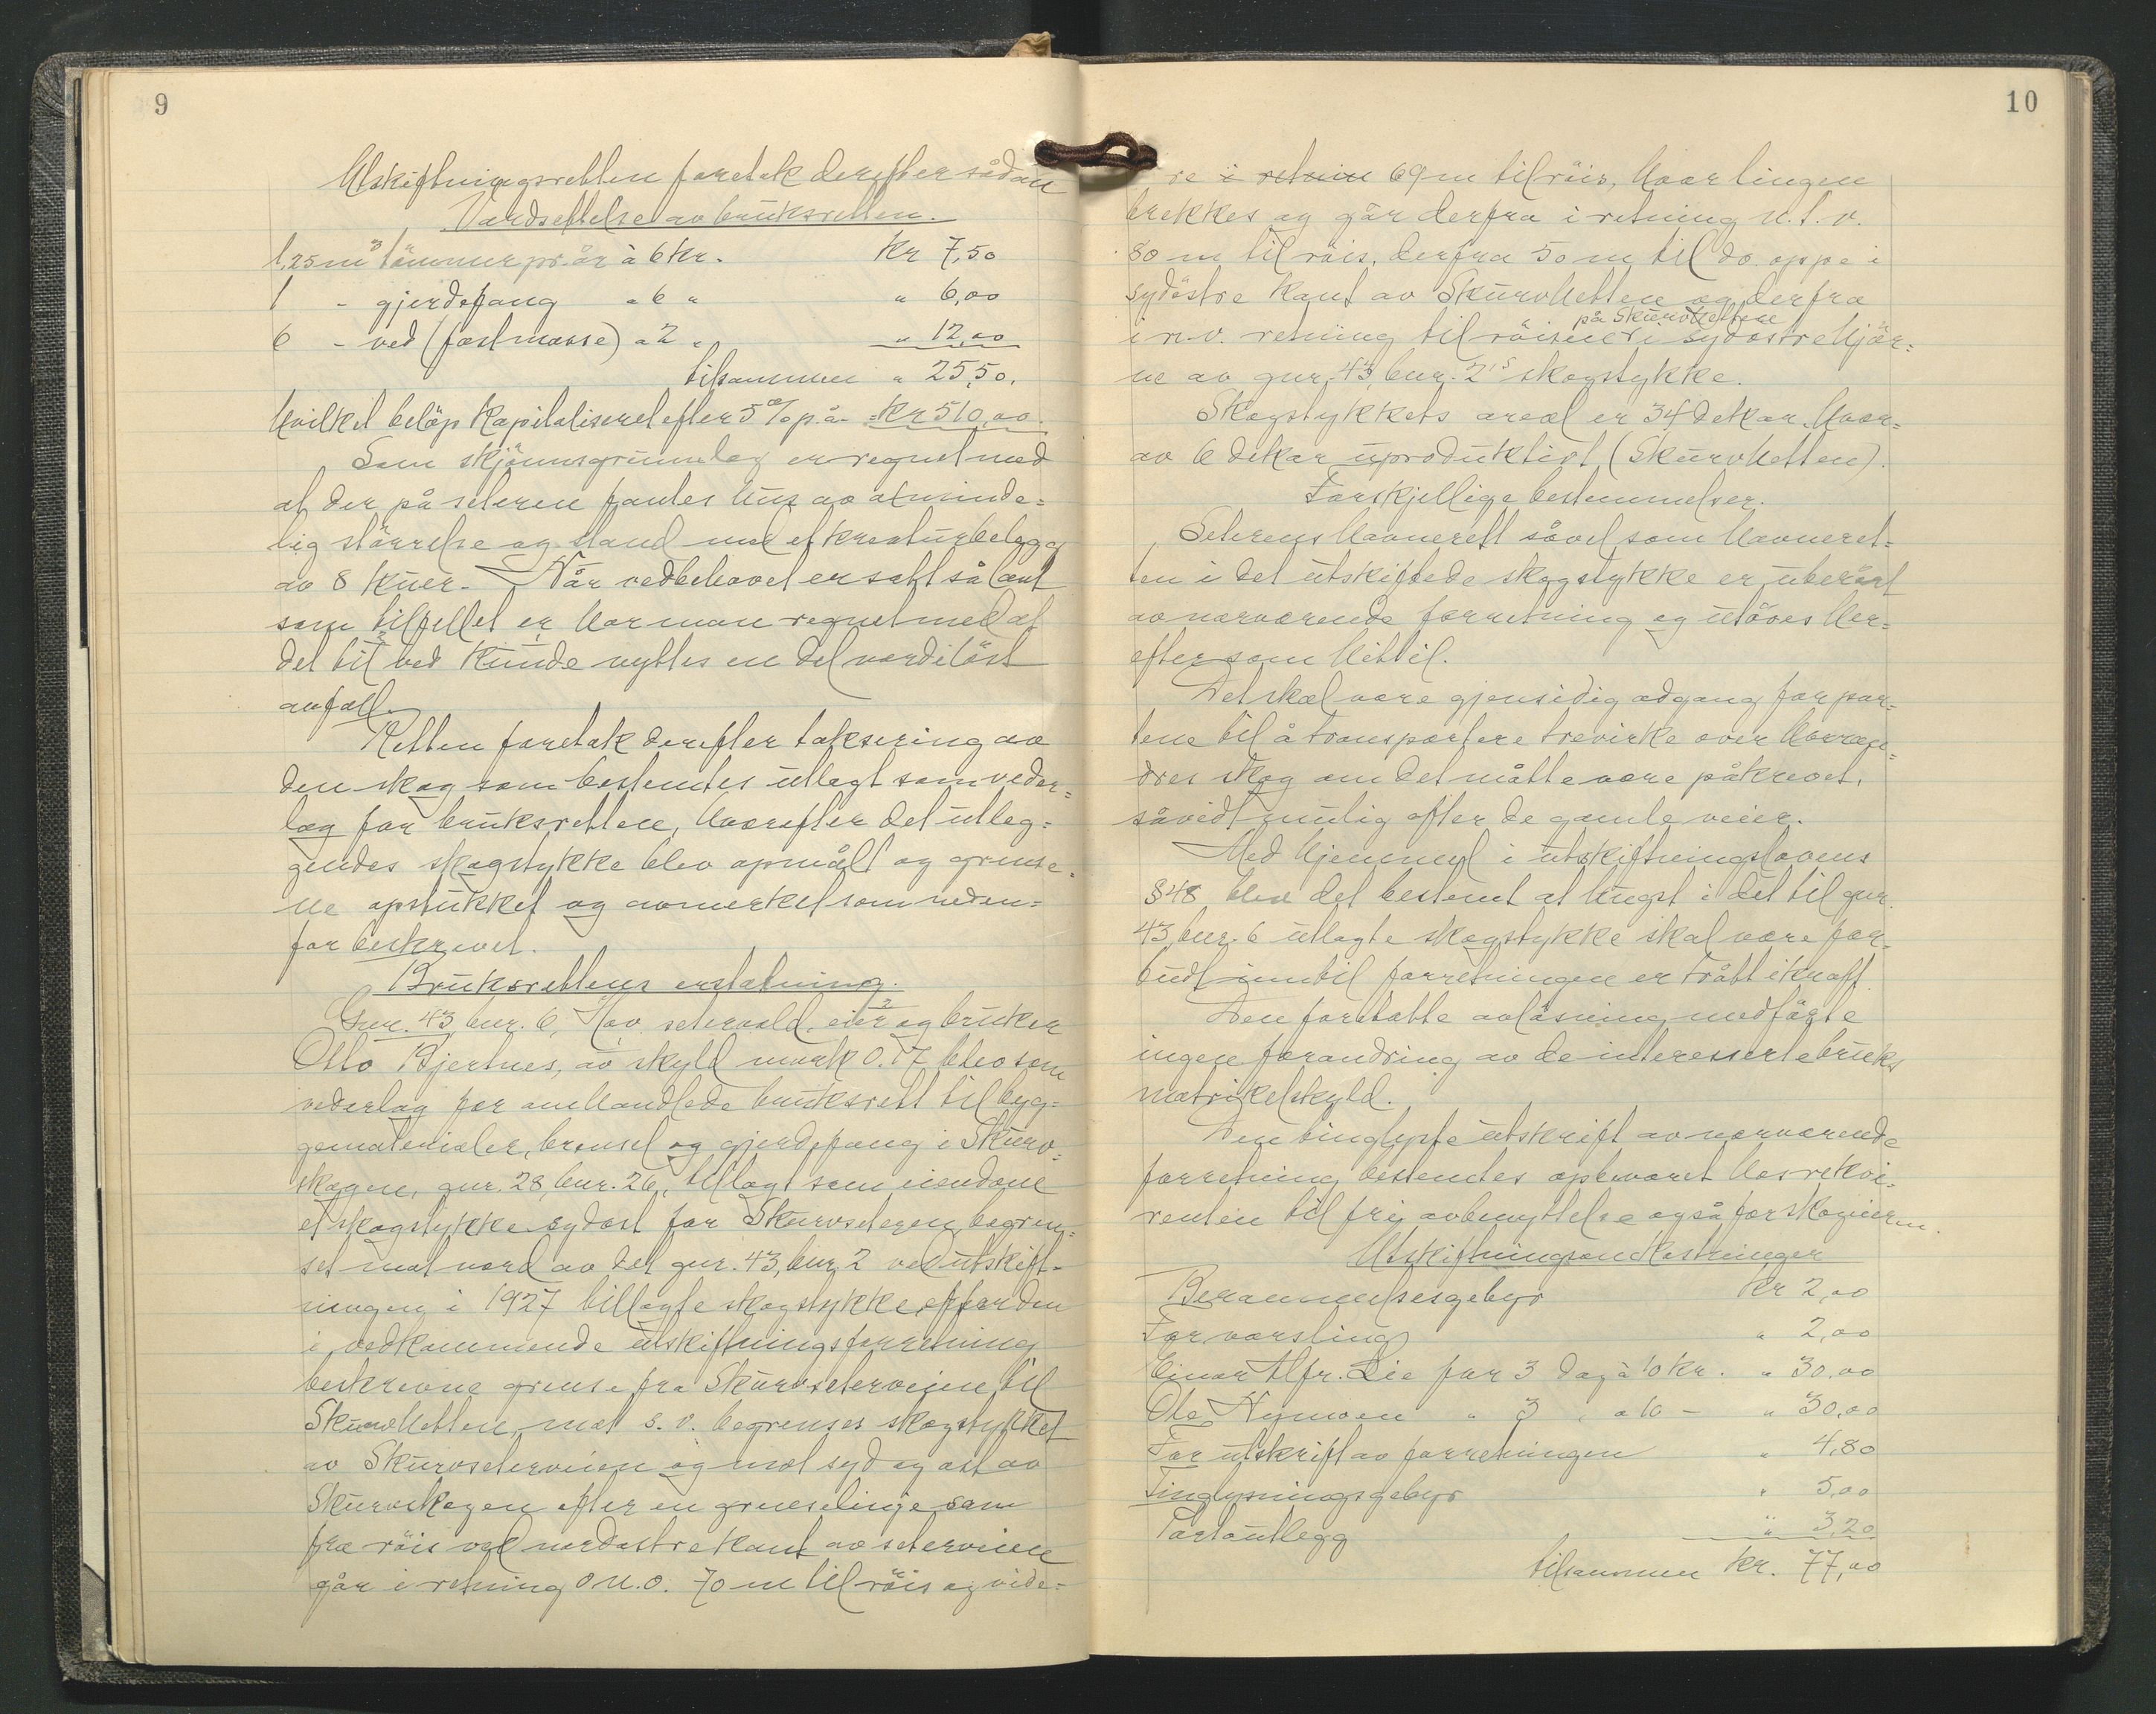 9
Utskiftningsretten foretok derefter sådan
Verdsettelse av bruksretten.
1,25 m³ tömmer pr. år à 6 kr. Kr 7,50
1 - gjerdefang " 6 " " 6,00
6 - ved (fastmasse) " 2 " " 12,00
tilsammen " 25,50.
Hvilket belöp kapitaliseret efter 5 % p.a. = Kr 510,00.
Som skjönnsgrunnlag er regnet med
at der på seteren fantes hus av alminde=
lig störrelse og stand med et kreaturbelegg
av 8 kuer. - Når vedbehovet er satt så lavt
som tilfellet er har man regnet med at
det til ved kunde nyttes en del verdilöst
avfall.
Retten foretok derefter taksering av
den skog som bestemtes utlagt som veder=
lag for bruksretten, hvorefter det utleg=
gendes skogstykke blev opmålt og grense=
ne opstukket og avmerket som neden=
for beskrevet.
Bruksrettens erstatning.
Gnr. 43, bnr. 6, Hov, setervold, eier og bruker
Otto Bjertnes, av skyld mark 0.17 blev som
vederlag for omhandlede bruksrett til byg=
gematerialer, brensel og gjerdefang i Skurv=
skogen, gnr. 28, bnr. 26, tillagt som eiendom
et skogstykke sydöst for Skurvseteren, begren=
set mot nord av det gnr. 43, bnr. 2 ved utskift=
ningen i 1927 tillagte skogstykke efter den
i vedkommende utskiftningsforretning
beskrevne grense fra Skurvseterveien til
Skurvhetten, mot s.v. begrenses skogstykket
av Skurvseterveien og mot syd og öst av
Skurvskogen efter en grenselinje som
fra röis ved nordöstre kant av seterveien
går i retning o.n.o. 70 m til röis og vide=
10
re i retnin 69 m til röis, hvor linjen
brekkes og går derfra i retning n.t.v.
80 m til röis, derfra 50 m til do. oppe i
sydöstre kant av Skurvhetten og derfra
på Skurvhettene
i n.v. retning til röisen i sydöstre hjör=
ne av gnr. 43, bnr. 2's skogstykke.
Skogstykkets areal er 34 dekar, hvor=
av 6 dekar uproduktivt (Skurvhetten).
Forskjellige bestemmelser.
Seterens havnerett såvel som havneret=
ten i det utskiftede skogstykke er uberört
av nærværende forretning og utöves her=
efter som hittil.
Det skal være gjensidig adgang for par=
tene til å transportere trevirke over hveran=
dres skog om det måtte være påkrevet,
såvidt mulig efter de gamle veier.
Med hjemmel i utskiftningslovens
§ 48 blev det bestemt at hugst i det til gnr.
43, bnr. 6 utlagte skogstykke skal være for=
budt inntil forretningen er trått i kraft.
Den foretatte avlösning medförte
ingen forandring av de interesserte bruks
matrikelskyld.
Den tinglyste utskrift av nærværende
forretning bestemtes opbevaret hos rekvi=
renten til fri avbenyttelse også for skogeieren.
Utskiftningsomkostninger
Berammelsesgebyr Kr 2,00
For varsling " 2,00
Einar Alfr. Lie for 3 dag à 10 kr. " 30,00
Ole Nymoen " 3 " à 10 - " 30,00
For utskrift av forretningen " 4,80
Tinglysningsgebyr " 5,00
Portoutlegg " 3,20
tilsammen Kr. 77,00